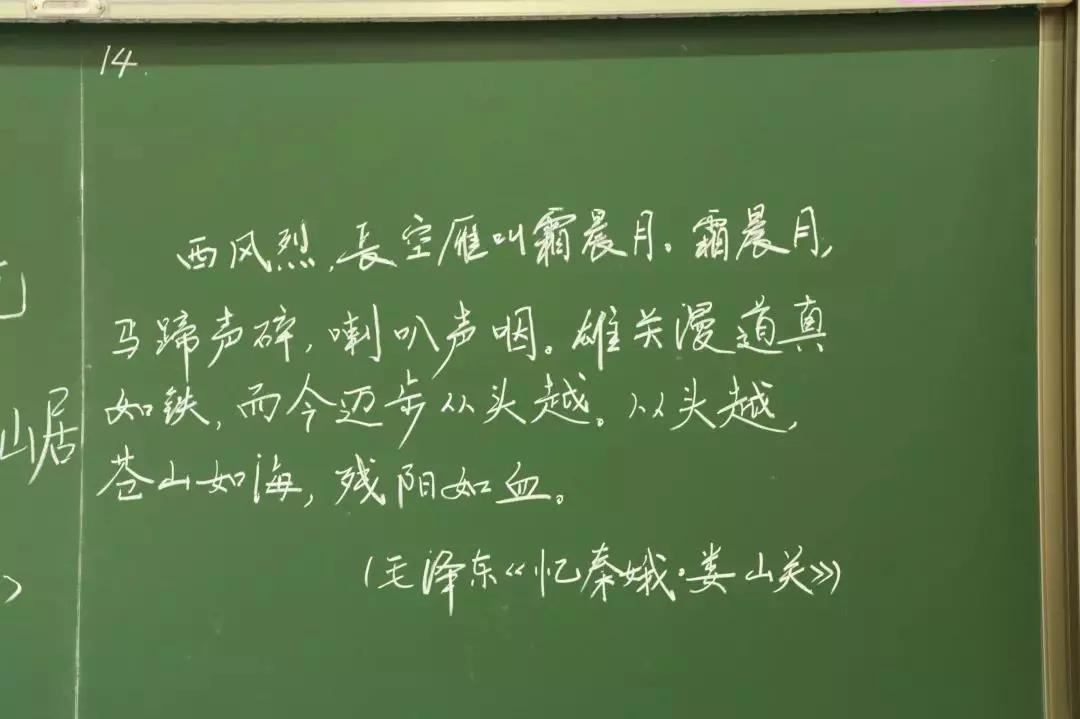 14.
西风烈,長空雁叫霜晨月。霜晨月,
马蹄声碎,喇叭声咽。雄关漫道真
如铁,而今迈步从头越。从头越,
苍山如海,残阳如血。
(毛泽东《忆秦娥·娄山关》)
山居